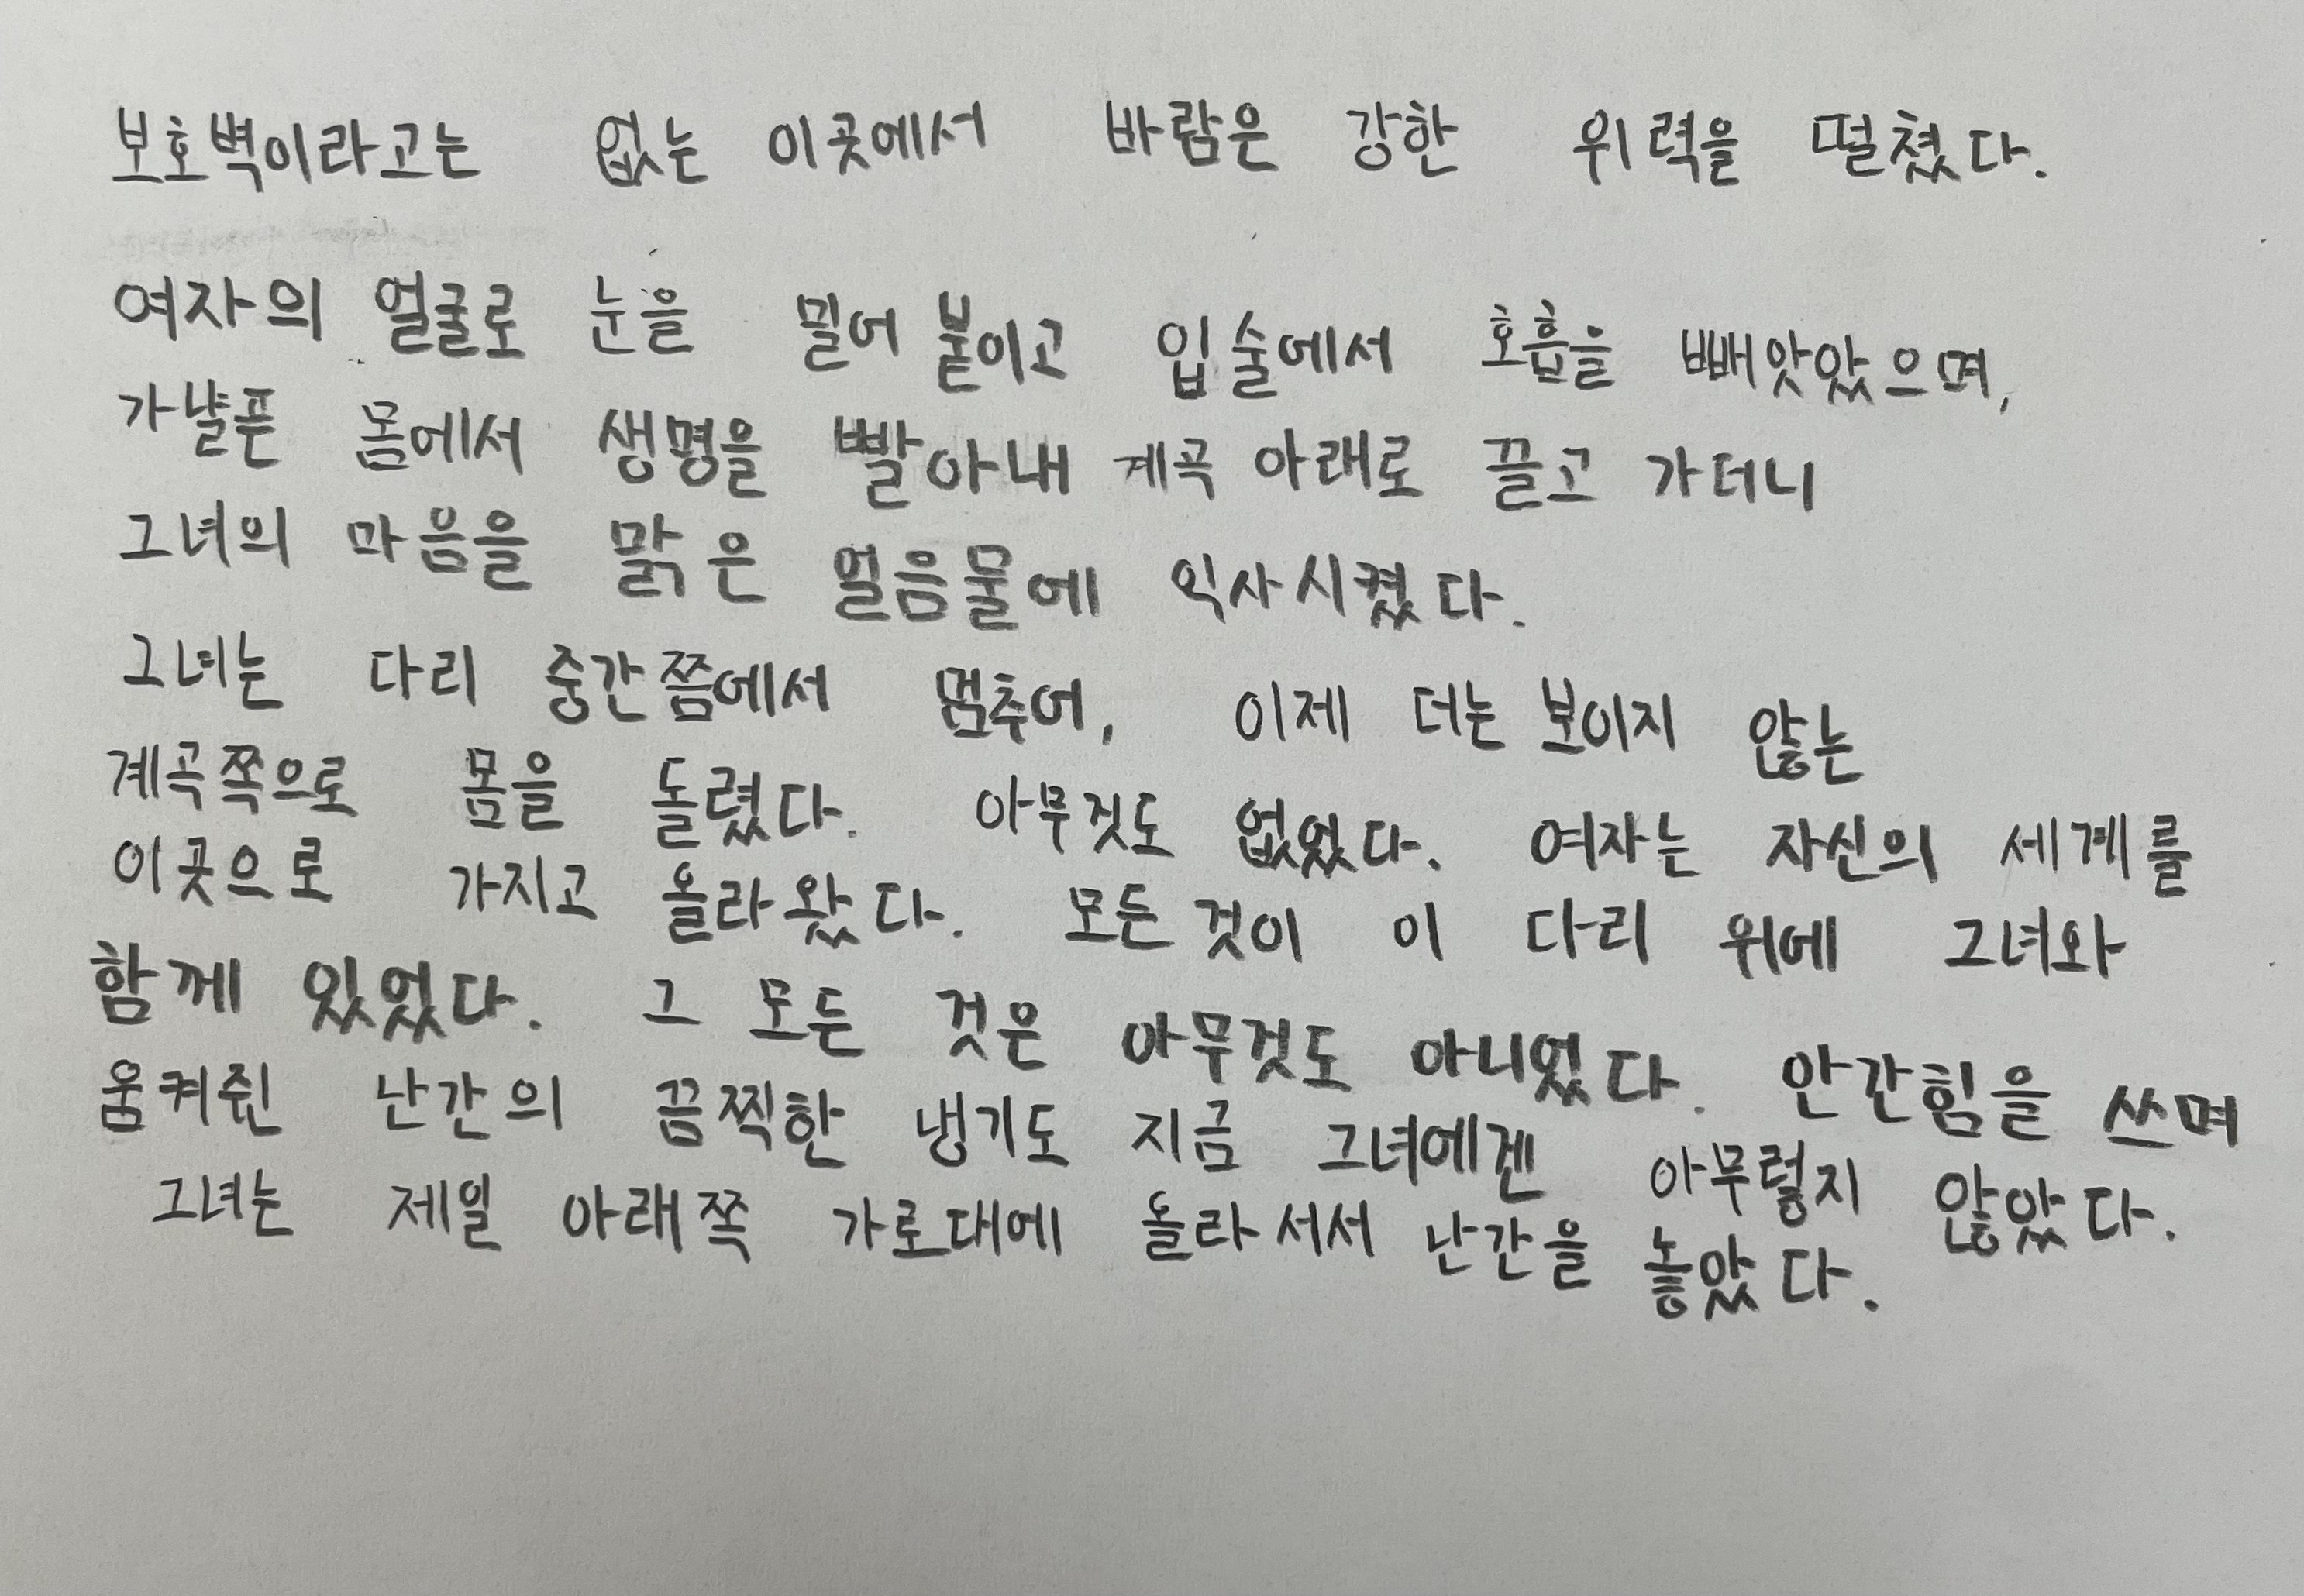 보호벽이라고는 없는 이곳에서 바람은 강한 위력을 떨쳤다.
여자의 얼굴로 눈을 밀어 붙이고 입술에서 호흡을 빼앗았으며,
가냘픈 몸에서 생명을 빨아내 계곡 아래로 끌고 가더니
그녀의 마음을 맑은 얼음물에 익사시켰다.
그녀는 다리 중간쯤에서 멈추어, 이제 더는 보이지 않는
계곡쪽으로 몸을 돌렸다. 아무것도 없었다. 여자는 자신의 세계를
이곳으로 가지고 올라왔다. 모든 것이 이 다리 위에 그녀와
함께 있었다. 그 모든 것은 아무것도 아니었다. 안간힘을 쓰며
움켜쥔 난간의 끔찍한 냉기도 지금 그녀에겐 아무렇지 않았다.
그녀는 제일 아래쪽 가로대에 올라서서 난간을 놓았다.